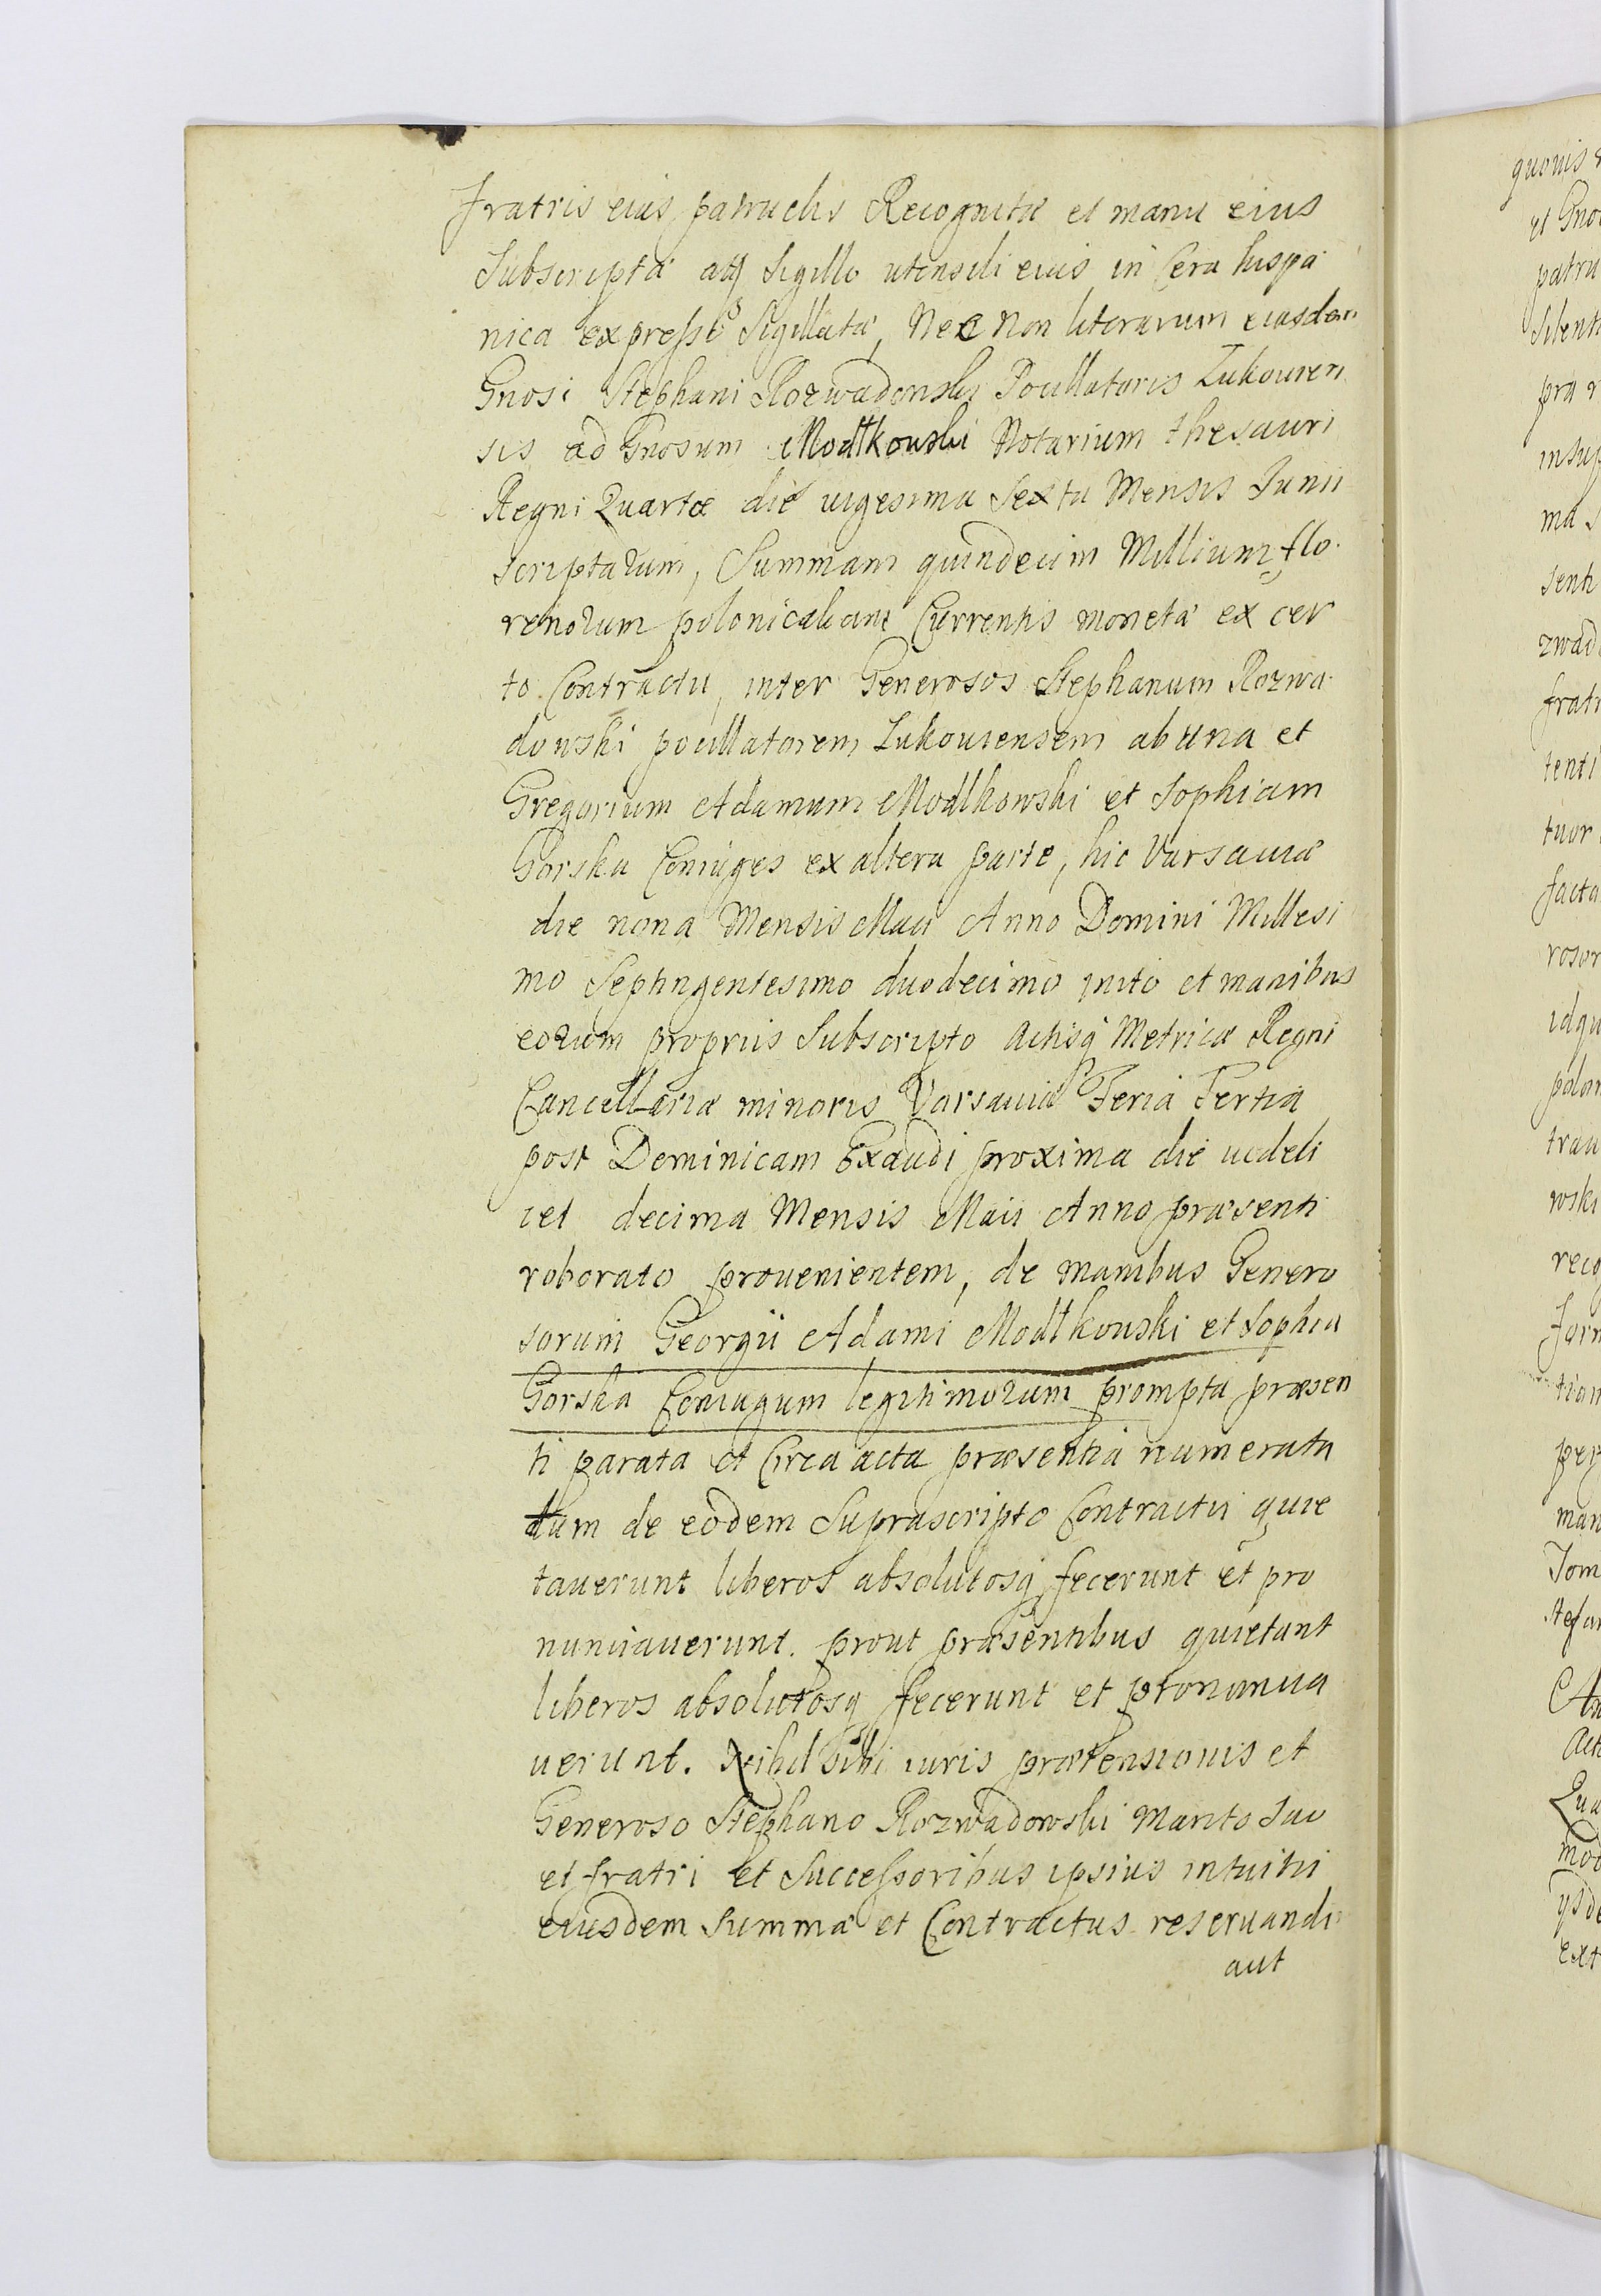 fratris eius patruelis Recognitæ et manu eius
Subscriptæ atq Sigillo utensili eius in Cera hispa
nica expresso Sigillatæ, Nec Non literarum eiusdem
Gnosi Stephani Rozwadowski Pocillatoris Łukovien
sis ad Gnosum Modłkouski Notarium thesauri
Regni Quartæ die uigesima Sexta Mensis Junii
scriptarum, Summam quindecim Millium flo.
renorum polonicalium Currentis monetæ ex cer
to Contractu, inter Generosos Stephanum Rozwa
dowski pocillatorem Łukouiensem ab una et
Gregorium Adamum Modłkowski et Sophiam
Gorska Coniuges ex altera parte, hic Varsauiæ
die nona Mensis Maii Anno Domini Millesi
mo Septingentesimo duodecimo inito et manibus
eorum propriis Subscripto Actisq Metricæ Regni
Cancellariæ minoris Varsauiæ Feria Tertia
post Dominicam Exaudi proxima die uideli
cet decima Mensis Maii Anno præsenti
roborato prouenientem, de manibus Genero
sorum Georgii Adami Modłkouski et Sophia
Gorska Coniugum legitimorum prompta præsen
ti parata et Circa acta præsentia numerata
dum de eodem Suprascripto Contractu quie
tauerunt liberos absolutosq fecerunt et pro
nunciauerunt. prout præsentibus quietant
liberos absolutosq fecerunt et pronuncia
uerunt. Nihil sibi iuris prætensionis et
Generoso Stephano Rozwadowski Marito Suo
et fratri et Successoribus ipsius intuitu
eiusdem Summæ et Contractus reseruandi
aut
quouis
et Gnos
patru
senti
zwad
frat
tenti
tuor
facta
rosor
idqu
polon
wski
reco